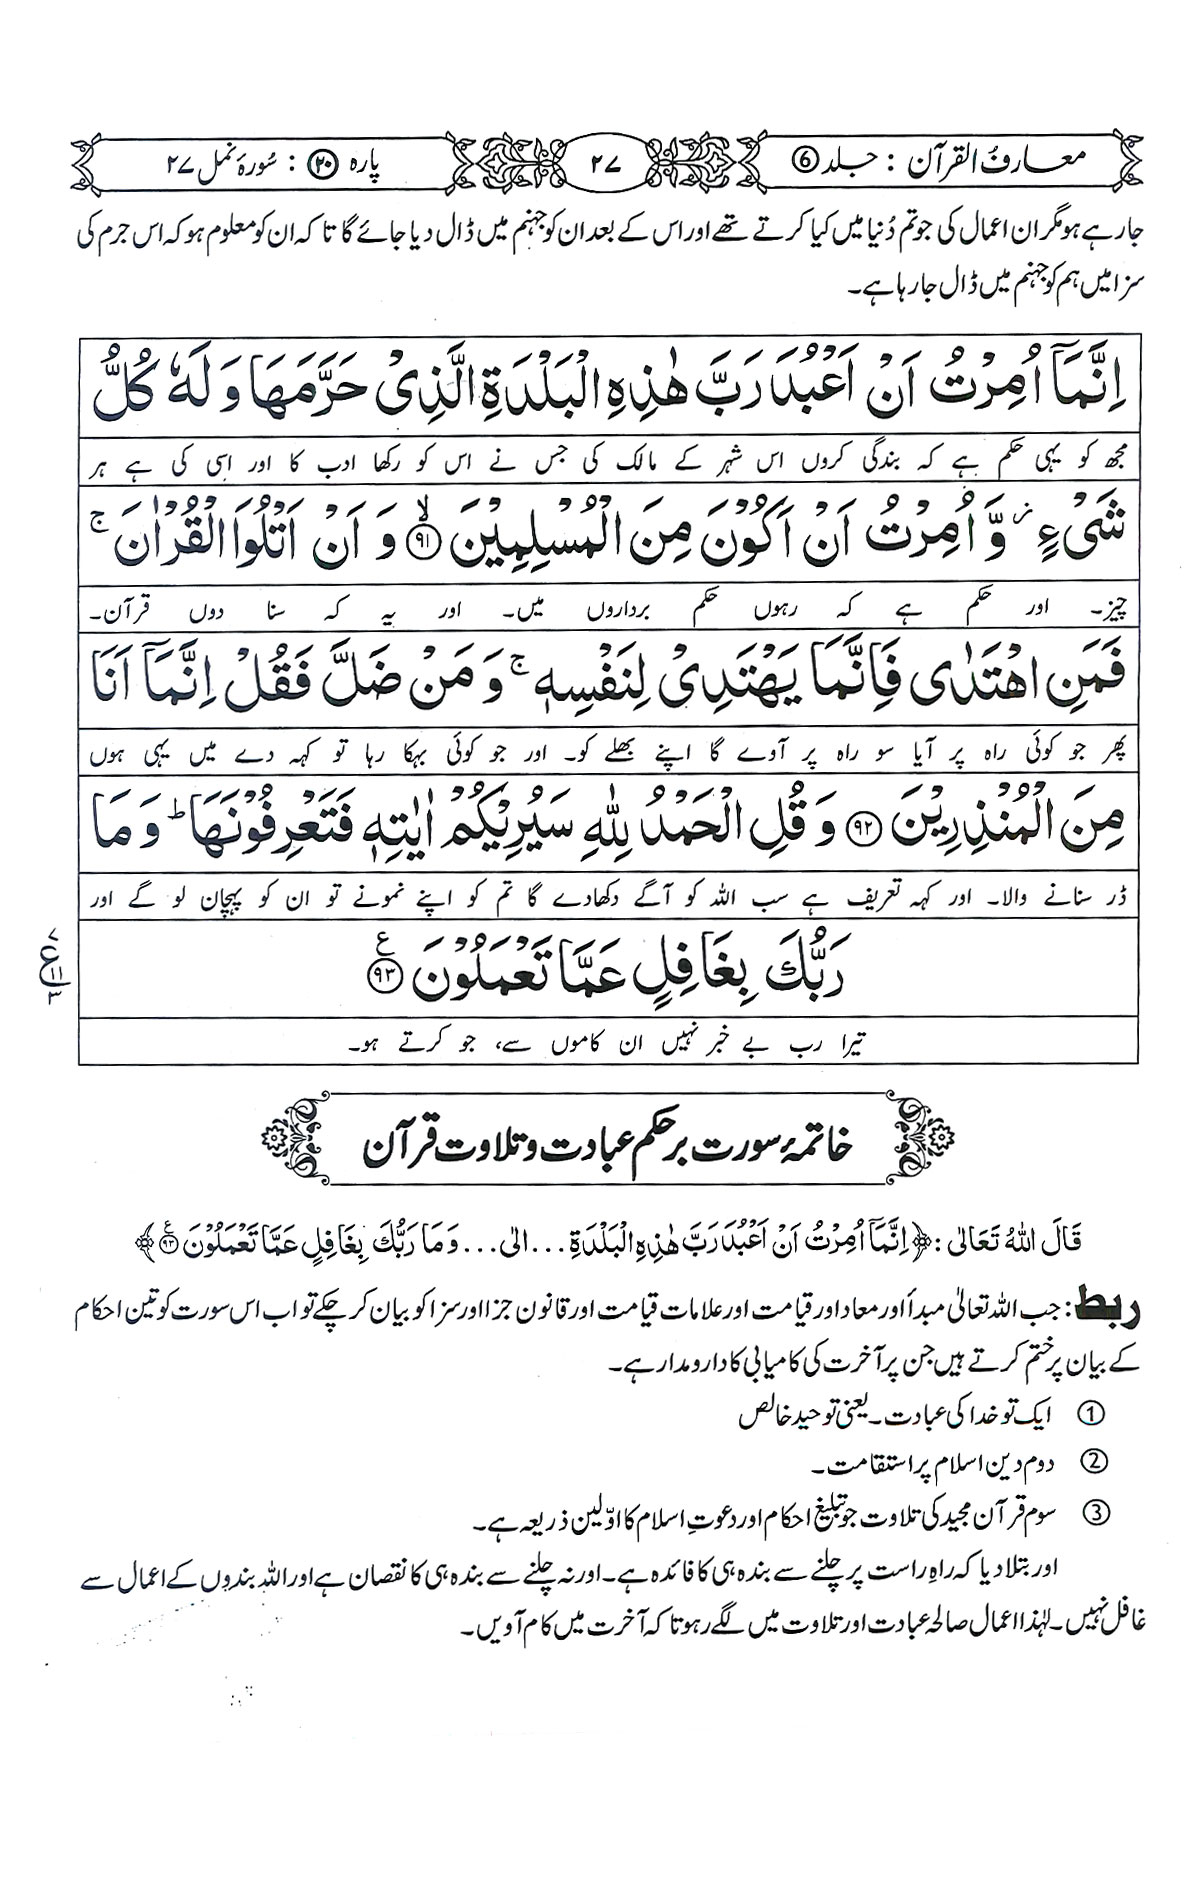 معارف القرآن : جلد ⑥ ۲۷ پارہ ⑳ : سُورۂ نمل ۲۷
جا رہے ہو مگر ان اعمال کی جو تم دُنیا میں کیا کرتے تھے اور اس کے بعد ان کو جہنم میں ڈال دیا جائے گا تا کہ ان کو معلوم ہو کہ اس جرم کی
سزا میں ہم کو جہنم میں ڈال جا رہا ہے۔
اِنَّمَاۤ اُمِرْتُ اَنْ اَعْبُدَ رَبَّ هٰذِهِ الْبَلْدَةِ الَّذِیْ حَرَّمَهَا وَ لَهٗ كُلُّ
مجھ کو یہی حکم ہے کہ بندگی کروں اس شہر کے مالک کی جس نے اس کو رکھا ادب کا اور اسی کی ہے ہر
شَیْءٍ ؗ وَّ اُمِرْتُ اَنْ اَكُوْنَ مِنَ الْمُسْلِمِیْنَ ۙ﴿۹۱﴾ وَ اَنْ اَتْلُوَا الْقُرْاٰنَ ۚ
چیز۔ اور حکم ہے کہ رہوں حکم برداروں میں۔ اور یہ کہ سنا دوں قرآن۔
فَمَنِ اهْتَدٰی فَاِنَّمَا یَهْتَدِیْ لِنَفْسِهٖ ۚ وَ مَنْ ضَلَّ فَقُلْ اِنَّمَاۤ اَنَا
پھر جو کوئی راہ پر آیا سو راہ پر آوے گا اپنے بھلے کو۔ اور جو کوئی بہکا رہا تو کہہ دے میں یہی ہوں
مِنَ الْمُنْذِرِیْنَ ﴿۹۲﴾ وَ قُلِ الْحَمْدُ لِلّٰهِ سَیُرِیْكُمْ اٰیٰتِهٖ فَتَعْرِفُوْنَهَا ؕ وَ مَا
ڈر سنانے والا۔ اور کہہ تعریف ہے سب اللہ کو آگے دکھادے گا تم کو اپنے نمونے تو ان کو پہچان لو گے اور
رَبُّكَ بِغَافِلٍ عَمَّا تَعْمَلُوْنَ ﴿۹۳﴾ ع
۷
ع ۱۱
۳
تیرا رب بے خبر نہیں ان کاموں سے، جو کرتے ہو۔
خاتمۂ سورت بر حکم عبادت و تلاوت قرآن
قَالَ اللهُ تَعَالٰی : ﴿اِنَّمَاۤ اُمِرْتُ اَنْ اَعْبُدَ رَبَّ هٰذِهِ الْبَلْدَةِ ... الٰی ... وَ مَا رَبُّكَ بِغَافِلٍ عَمَّا تَعْمَلُوْنَ ۹۳ ع﴾
ربط : جب اللہ تعالیٰ مبدأ اور معاد اور قیامت اور علامات قیامت اور قانون جزا اور سزا کو بیان کر چکے تو اب اس سورت کو تین احکام
کے بیان پر ختم کرتے ہیں جن پر آخرت کی کامیابی کا دارومدار ہے۔
① ایک تو خدا کی عبادت۔ یعنی توحید خالص
② دوم دین اسلام پر استقامت۔
③ سوم قرآن مجید کی تلاوت جو تبلیغ احکام اور دعوتِ اسلام کا اوّلین ذریعہ ہے۔
اور بتلا دیا کہ راہِ راست پر چلنے سے بندہ ہی کا فائدہ ہے۔ اور نہ چلنے سے بندہ ہی کا نقصان ہے اور اللہ بندوں کے اعمال سے
غافل نہیں۔ لہٰذا اعمال صالحہ عبادت اور تلاوت میں لگے رہو تا کہ آخرت میں کام آویں۔